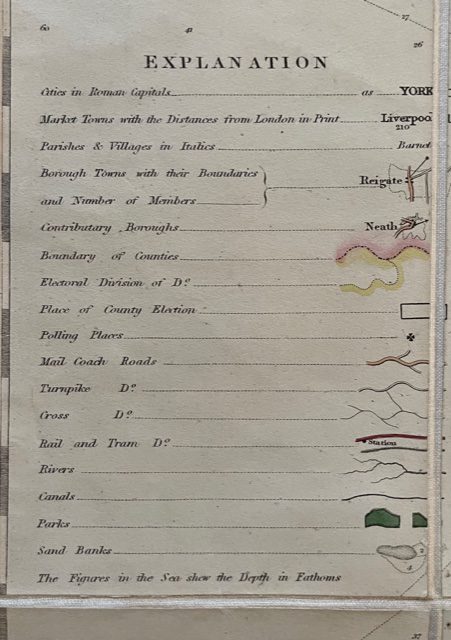 27
60 41 26
EXPLANATION
Cities in Roman Capitals as YORK
Market Towns with the Distances from London in Print Liverpoo
210
Parishes & Villages in Italics Barnet
Borough Towns with their Boundaries
Reigate
and Number of Members
Contributary Boroughs Neath
Boundary of Counties
Electoral Division of Dº
Place of County Election
Polling Places
Mail Coach Roads
Turnpike Dº
Cross Dº
Rail and Tram Dº Station
Rivers
Canals
Parks
Sand Banks 2
4
The Figures in the Sea shew the Depth in Fathoms
37